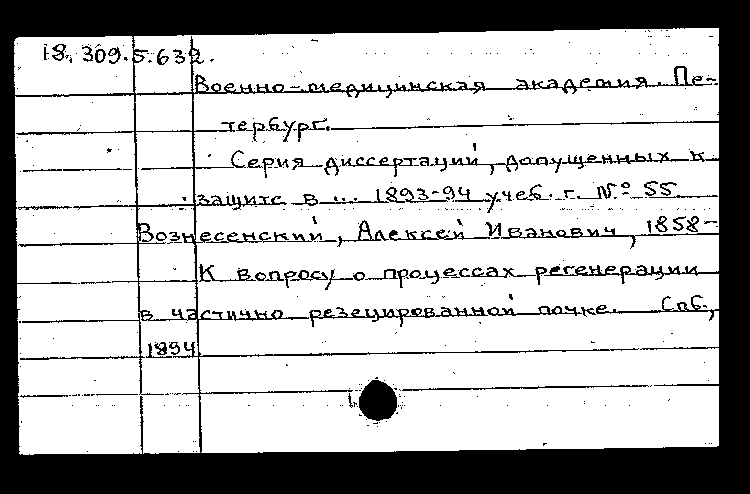 18. 309.5.632.
Военно-медицинская академия. Пе-
тербург.
Серия диссертаций, допущенных к
защите в ... 1893-94 учеб. г. № 55
Вознесенский, Алексей Иванович, 1858-
К вопросу о процессах регенерации
в частично резецированной почке. Спб.,
1894